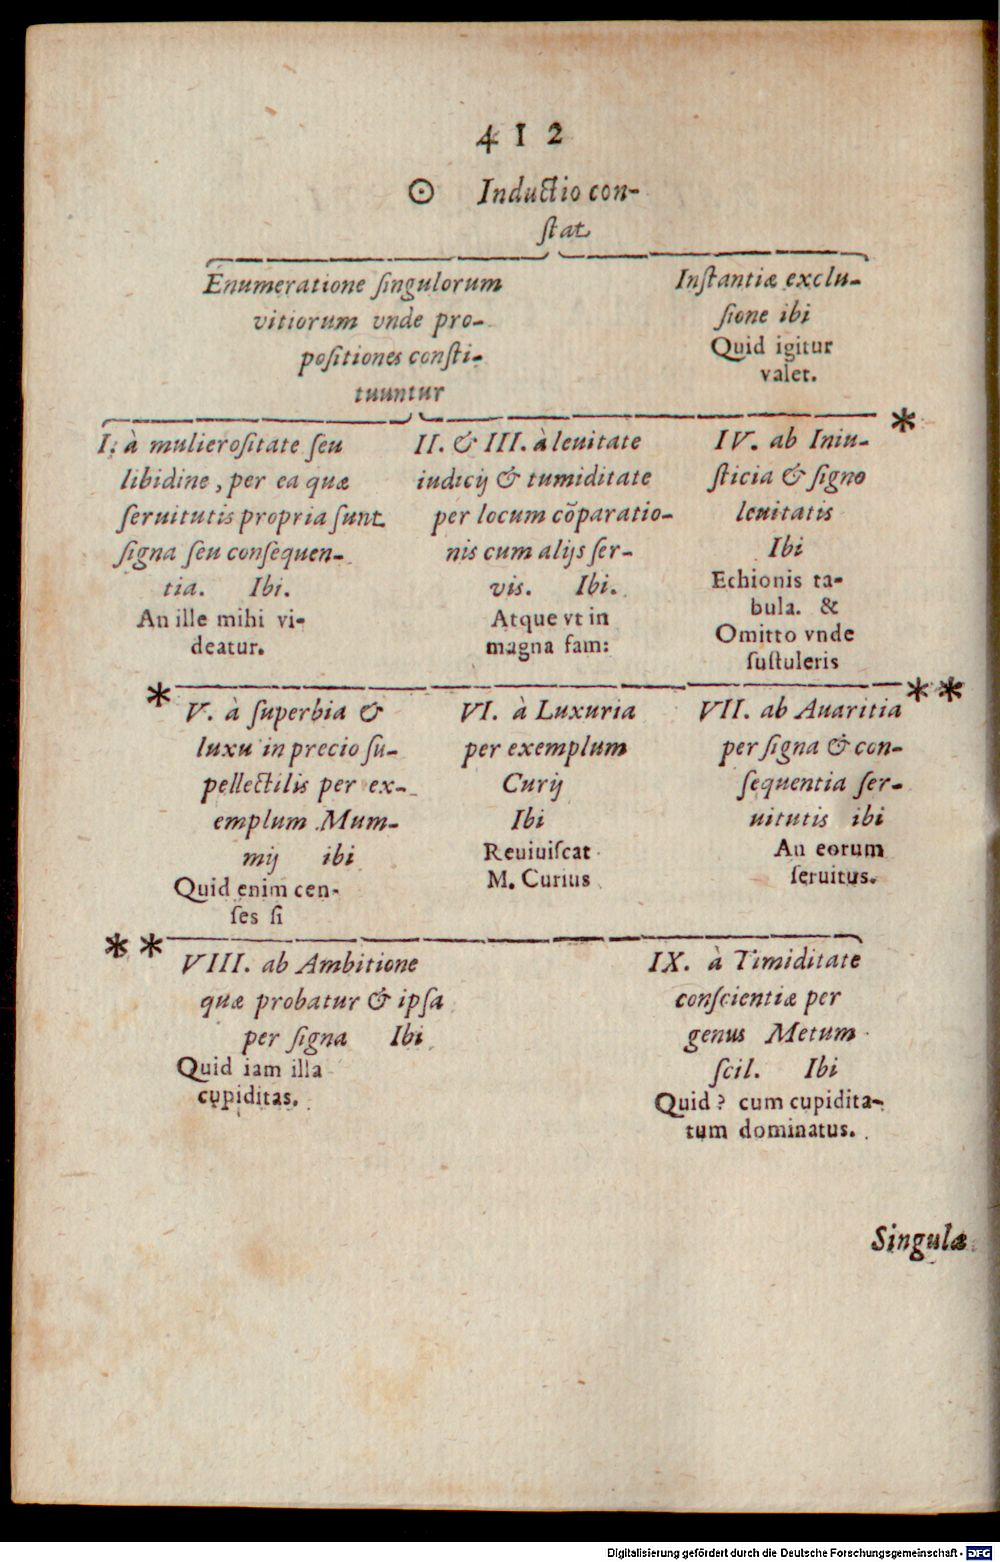 412
☉ Inductio con-
ſtat
Enumeratione ſingulorum
vitiorum vnde pro-
poſitiones conſti-
tuuntur
Inſtantiæ exclu-
ſione ibi
Quid igitur
valet.
I. à mulieroſitate ſeu
libidine, per ea quæ
ſeruitutis propria ſunt
ſigna ſeu conſequen-
tia. Ibi.
An ille mihi vi-
deatur.
II. & III. à leuitate
iudicij & tumiditate
per locum cõparatio-
nis cum alijs ſer-
vis. Ibi.
Atque vt in
magna fam:
*
IV. ab Iniu-
ſticia & ſigno
leuitatis
Ibi
Echionis ta-
bula. &
Omitto vnde
ſuſtuleris
*
V. à ſuperbia &
luxu in precio ſu-
pellectilis per ex-
emplum Mum-
mij ibi
Quid enim cen-
ſes ſi
VI. à Luxuria
per exemplum
Curij
Ibi
Reuiuiſcat
M. Curius
**
VII. ab Auaritia
per ſigna & con-
ſequentia ſer-
uitutis ibi
An eorum
ſeruitus.
**
VIII. ab Ambitione
quæ probatur & ipſa
per ſigna Ibi
Quid iam illa
cupiditas.
IX. à Timiditate
conſcientiæ per
genus Metum
ſcil. Ibi
Quid? cum cupidita-
tum dominatus.
Singulæ
Digitalisierung gefördert durch die Deutsche Forschungsgemeinschaft - DFG